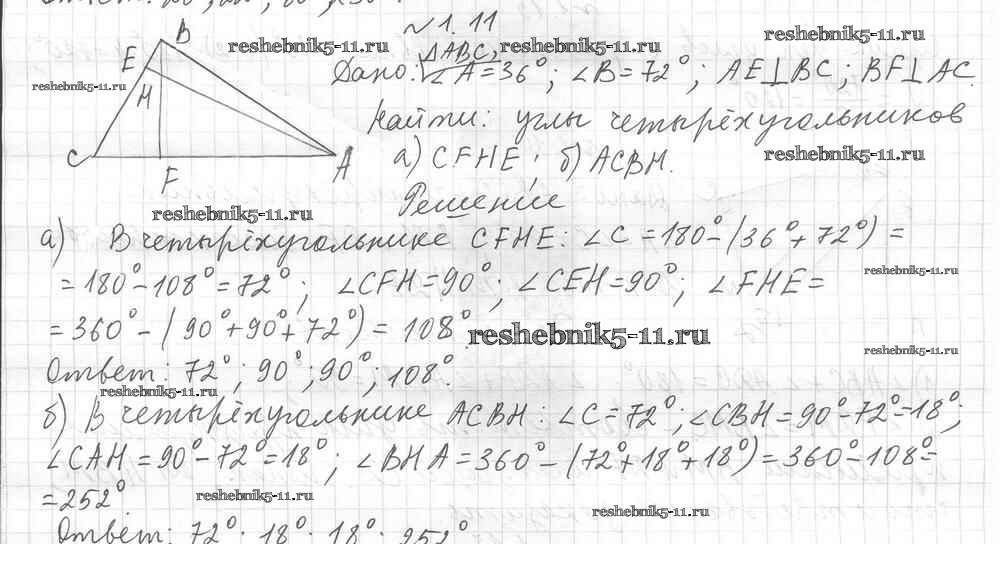 № 1. 11
reshebnik5-11.ru
reshebnik5-11.ru
reshebnik5-11.ru
reshebnik5-11.ru
B
E
H
C
F
A
Дано: △ABC, ∠A = 36°; ∠B = 72°; AE⊥BC; BF⊥AC.
Найти: углы четырёхугольников
а) CFHE; б) ACBH.
reshebnik5-11.ru
Решение
reshebnik5-11.ru
а) В четырёхугольнике CFHE: ∠C = 180° - (36° + 72°) =
= 180° - 108° = 72°; ∠CFH = 90°; ∠CEH = 90°; ∠FHE =
reshebnik5-11.ru
= 360° - (90° + 90° + 72°) = 108°.
reshebnik5-11.ru
reshebnik5-11.ru
Ответ: 72°; 90°; 90°; 108°.
reshebnik5-11.ru
б) В четырёхугольнике ACBH: ∠C = 72°; ∠CBH = 90° - 72° = 18°;
∠CAH = 90° - 72° = 18°; ∠BHA = 360° - (72° + 18° + 18°) = 360° - 108° =
= 252°.
reshebnik5-11.ru
reshebnik5-11.ru
Ответ: 72°; 18°; 18°; 252°